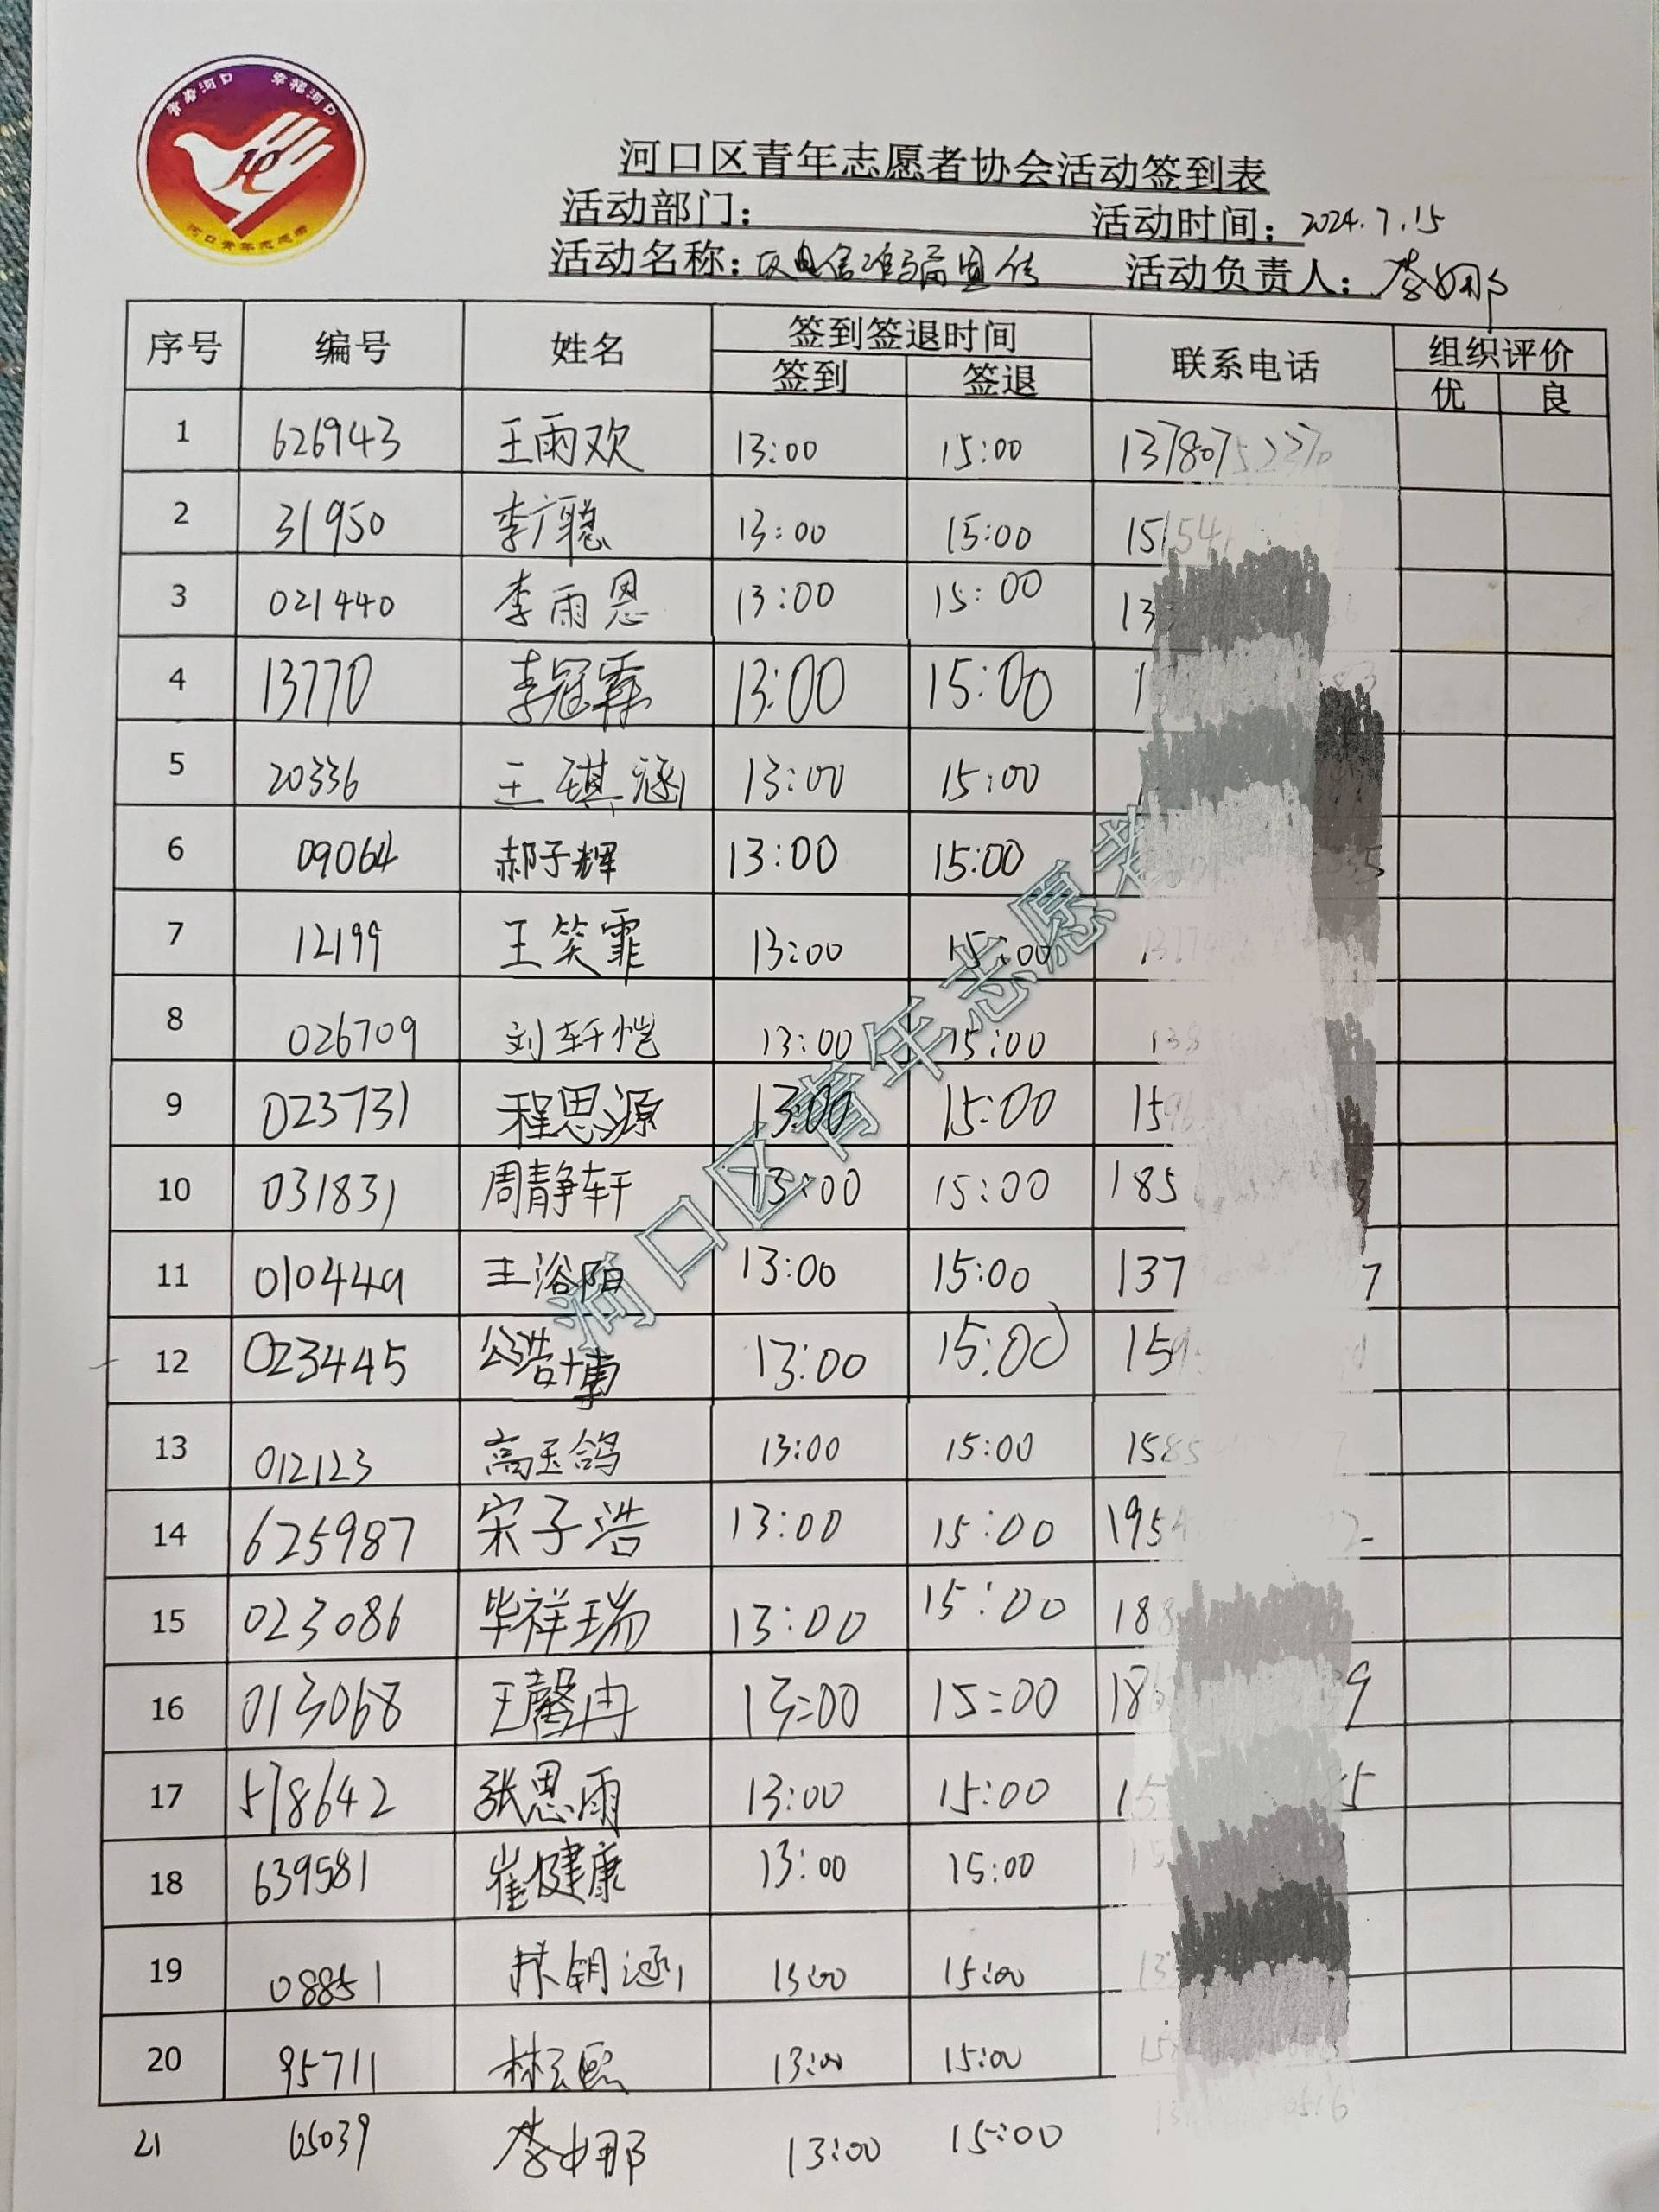 青春河口 幸福河口
河口青年志愿者
河口区青年志愿者协会活动签到表
活动部门： 活动时间：2024.7.15
活动名称：反电信诈骗宣传 活动负责人：李娜
序号 编号 姓名 签到签退时间 联系电话 组织评价
签到 签退 优 良
1 626943 王雨欢 13:00 15:00
2 31950 李广聪 13:00 15:00
3 021440 李雨恩 13:00 15:00
4 13770 李冠霖 13:00 15:00
5 20336 王琪涵 13:00 15:00
6 09064 郝子辉 13:00 15:00
7 12199 王笑霏 13:00 15:00
8 026709 刘轩恺 13:00 15:00
9 023731 程思源 13:00 15:00
10 031831 周静轩 13:00 15:00
11 010449 王浴阳 13:00 15:00
12 023445 公浩博 13:00 15:00
13 012123 高玉鸽 13:00 15:00
14 625987 宋子浩 13:00 15:00
15 023086 毕祥瑞 13:00 15:00
16 013068 王馨冉 13:00 15:00
17 578642 张思雨 13:00 15:00
18 639581 崔健康 13:00 15:00
19 08851 13:00 15:00
20 95711 13:00 15:00
21 65039 李娜 13:00 15:00
河口区青年志愿者